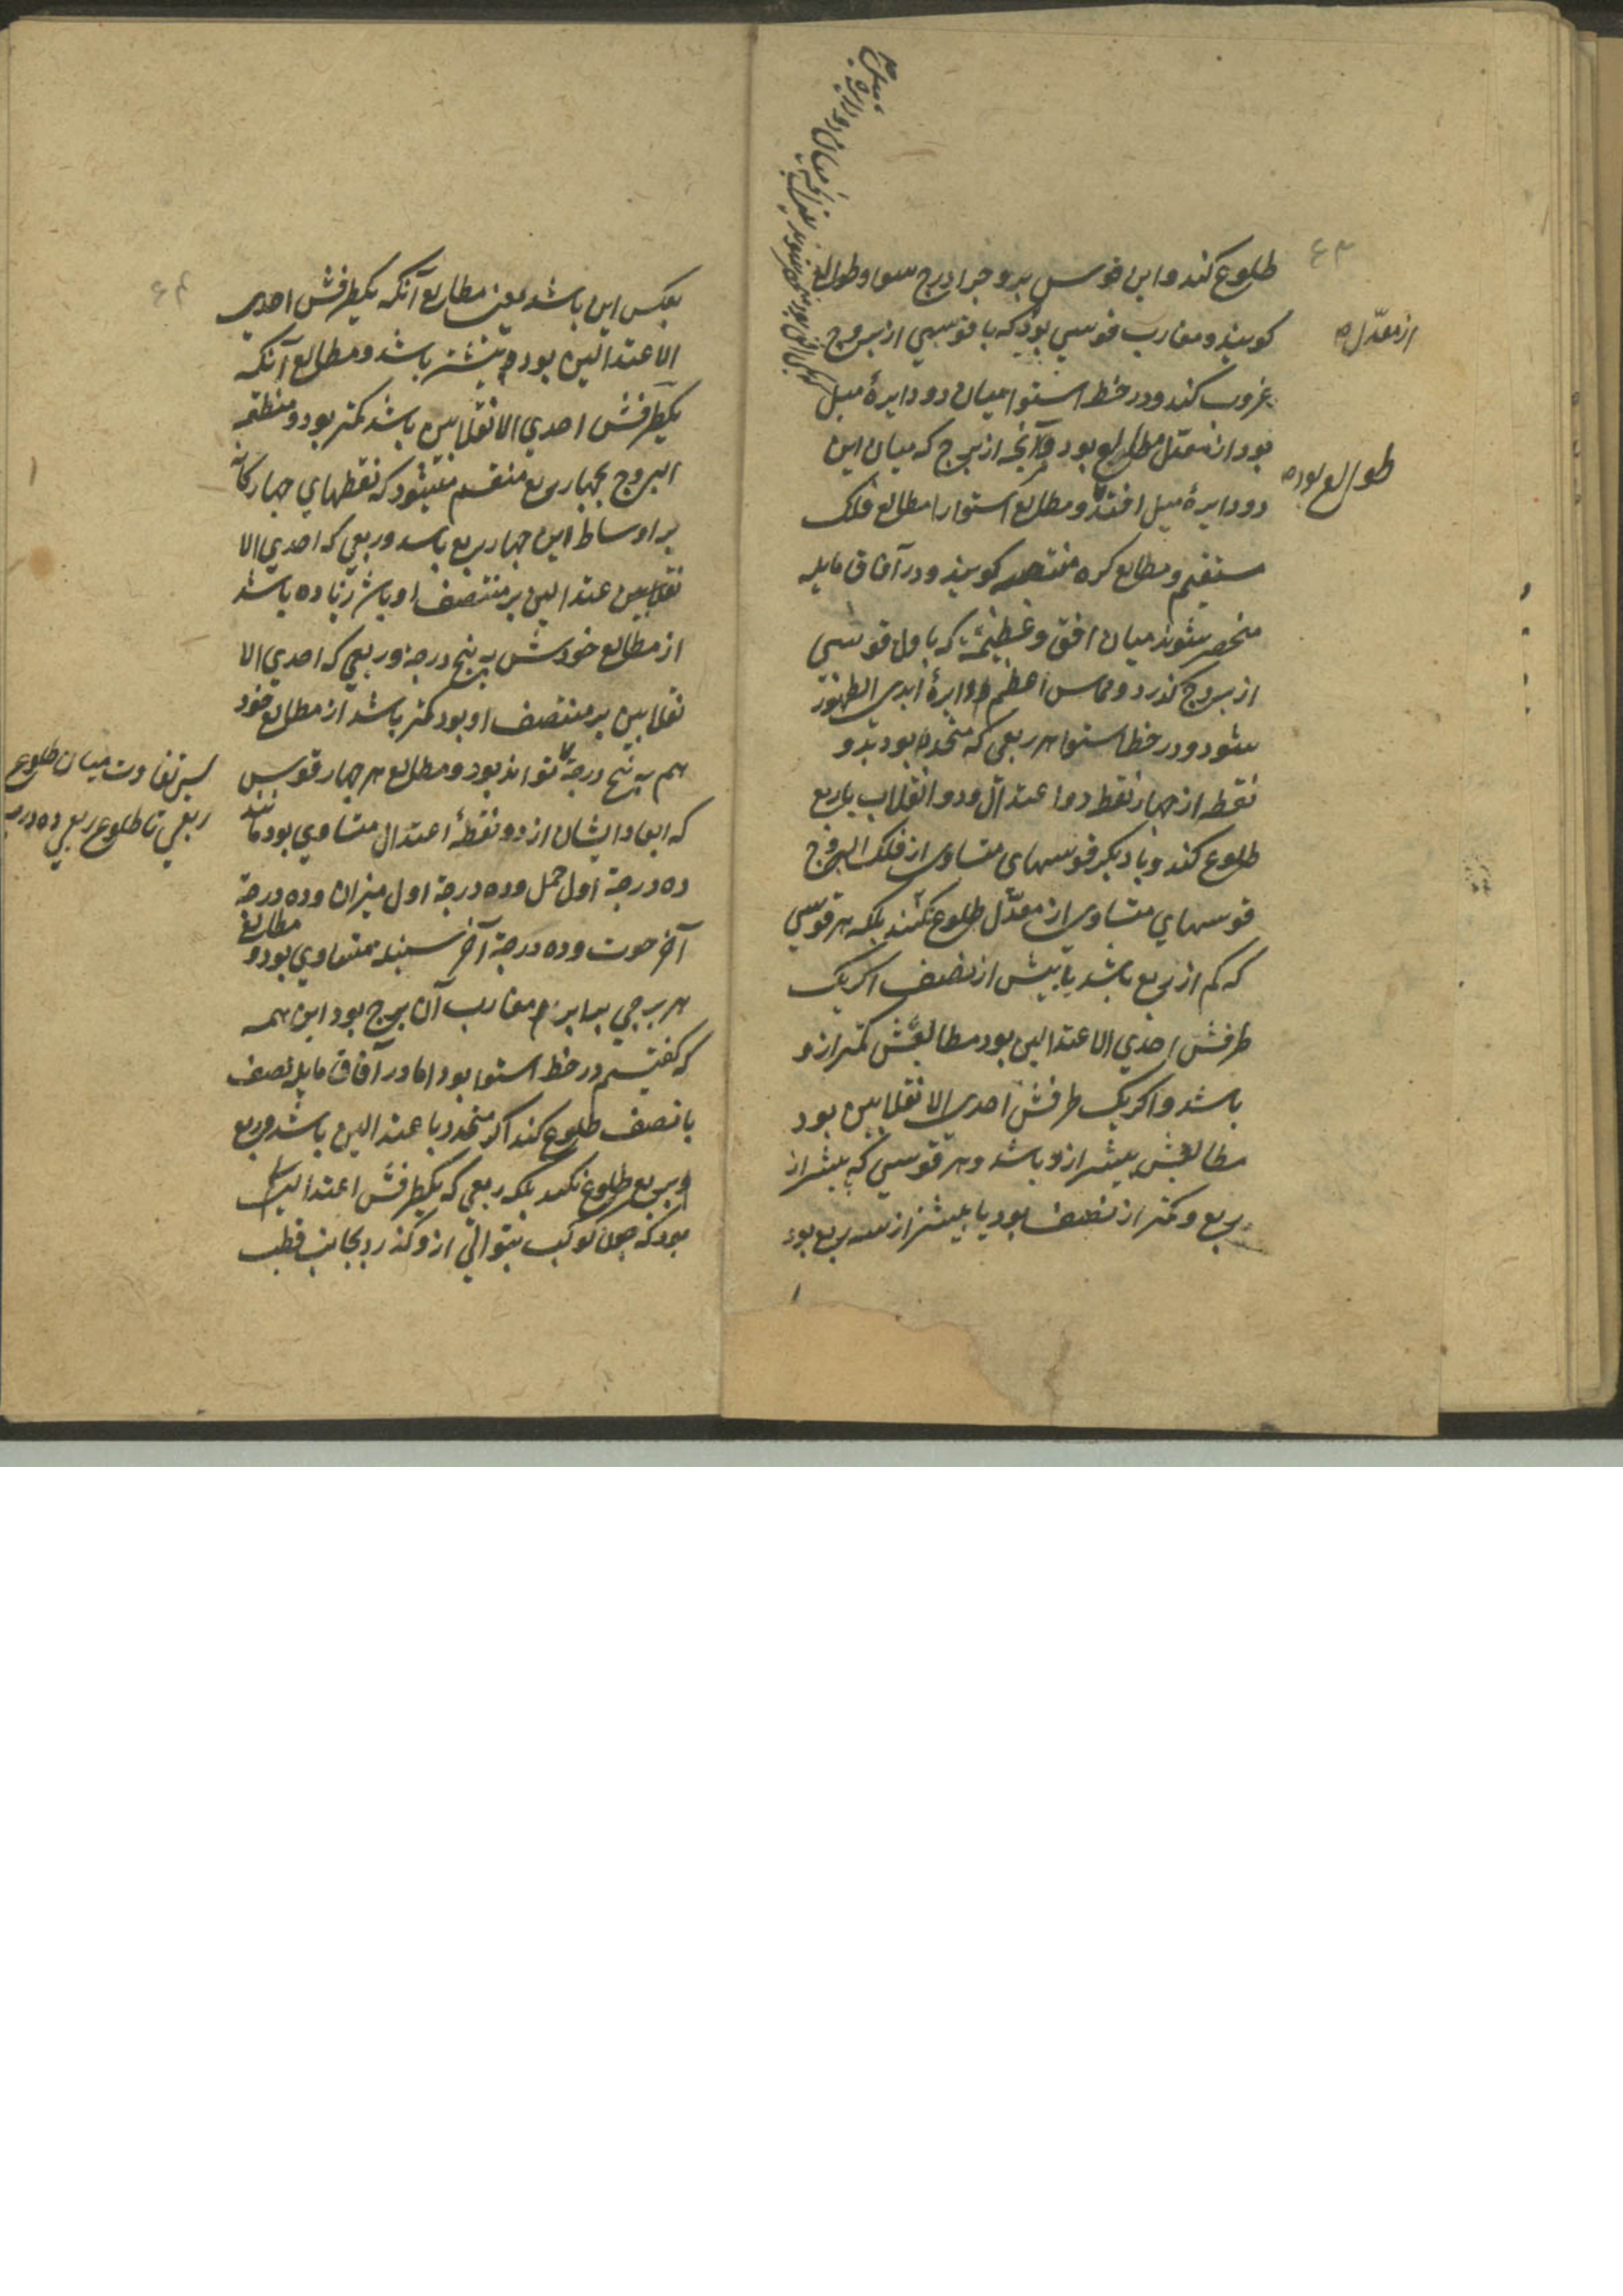 طلوع کند و این قوس بروجرا درج سوا و طوالع
کویند و مغارب قوسی بود که با قوسی از بروج
از معدل
غروب کند و در خط استوا میان دو دایرهٔ میل
بود از معدل مطالع بود و آنچه از بروج که میان این
طوالع بود
دو دایرهٔ میل افتد و مطالع استوا را مطالع فلک
مستقیم و مطالع کره منتصبه کویند و در آفاق مایله
منحصر شوند میان افق و عظیمهٔ که باول قوسی
از بروج کذرد و مماس اعظم دوایرهٔ ابدی الظهور
شود و در خط استوا هر ربعی که متحدد بود بدو
نقطه از چهار نقطه دو اعتدال و دو انقلاب با ربع
طلوع کند و با دیکر قوسهای متساوی از فلک البروج
قوسهای متساوی از معدّل طلوع نکنند بلکه هر قوسی
که کم از ربع باشد یا بیش از نصف اکر یک
طرفش احدی الاعتدالین بود مطالعش کمتر ازو
باشد و اکر یک طرفش احدی الانقلابین بود
مطالعش بیشتر ازو باشد و هر قوسی که بیشتر از
ربع و کمتر از نصف بود یا بیشتر از سه ربع بود
بعکس این باشد یعنی مطالع آنکه یکطرفش احدی
الاعتدالین بود بیشتر باشد و مطالع آنکه
یکطرفش احدی الانقلابین باشد کمتر بود و منطقه
البروج بچهار ربع منقسم میشود که نقطهای چهارکانه
بر اوساط این چهار ربع باشد و ربعی که احدی الا
عتدالین بر منتصف او باشد زیاده باشد
از مطالع خودش به پنج درجه و ربعی که احدی الا
نقلابین بر منتصف او بود کمتر باشد از مطالع خود
هم به پنج درجه تواند بود و مطالع هر چهار قوس
پس تفاوت میان طلوع
ربعی تا طلوع ربعی ده درجه
که ابعاد ایشان از دو نقطهٔ اعتدال متساوی بود مانند
ده درجهٔ اول حمل و ده درجهٔ اول میزان و ده درجهٔ
آخر حوت و ده درجهٔ آخر سنبله متساوی بود و مطالع
هر برجی برابر مغارب آن برج بود این همه
که کفتیم در خط استوا بود اما در آفاق مایله نصف
با نصف طلوع کند اکر متحدد باعتدالین باشد و ربع
با ربع طلوع نکند بلکه ربعی که یکطرفش اعتدالی
بود که چون کوکب بتوالی ازو کذرد بجانب قطب